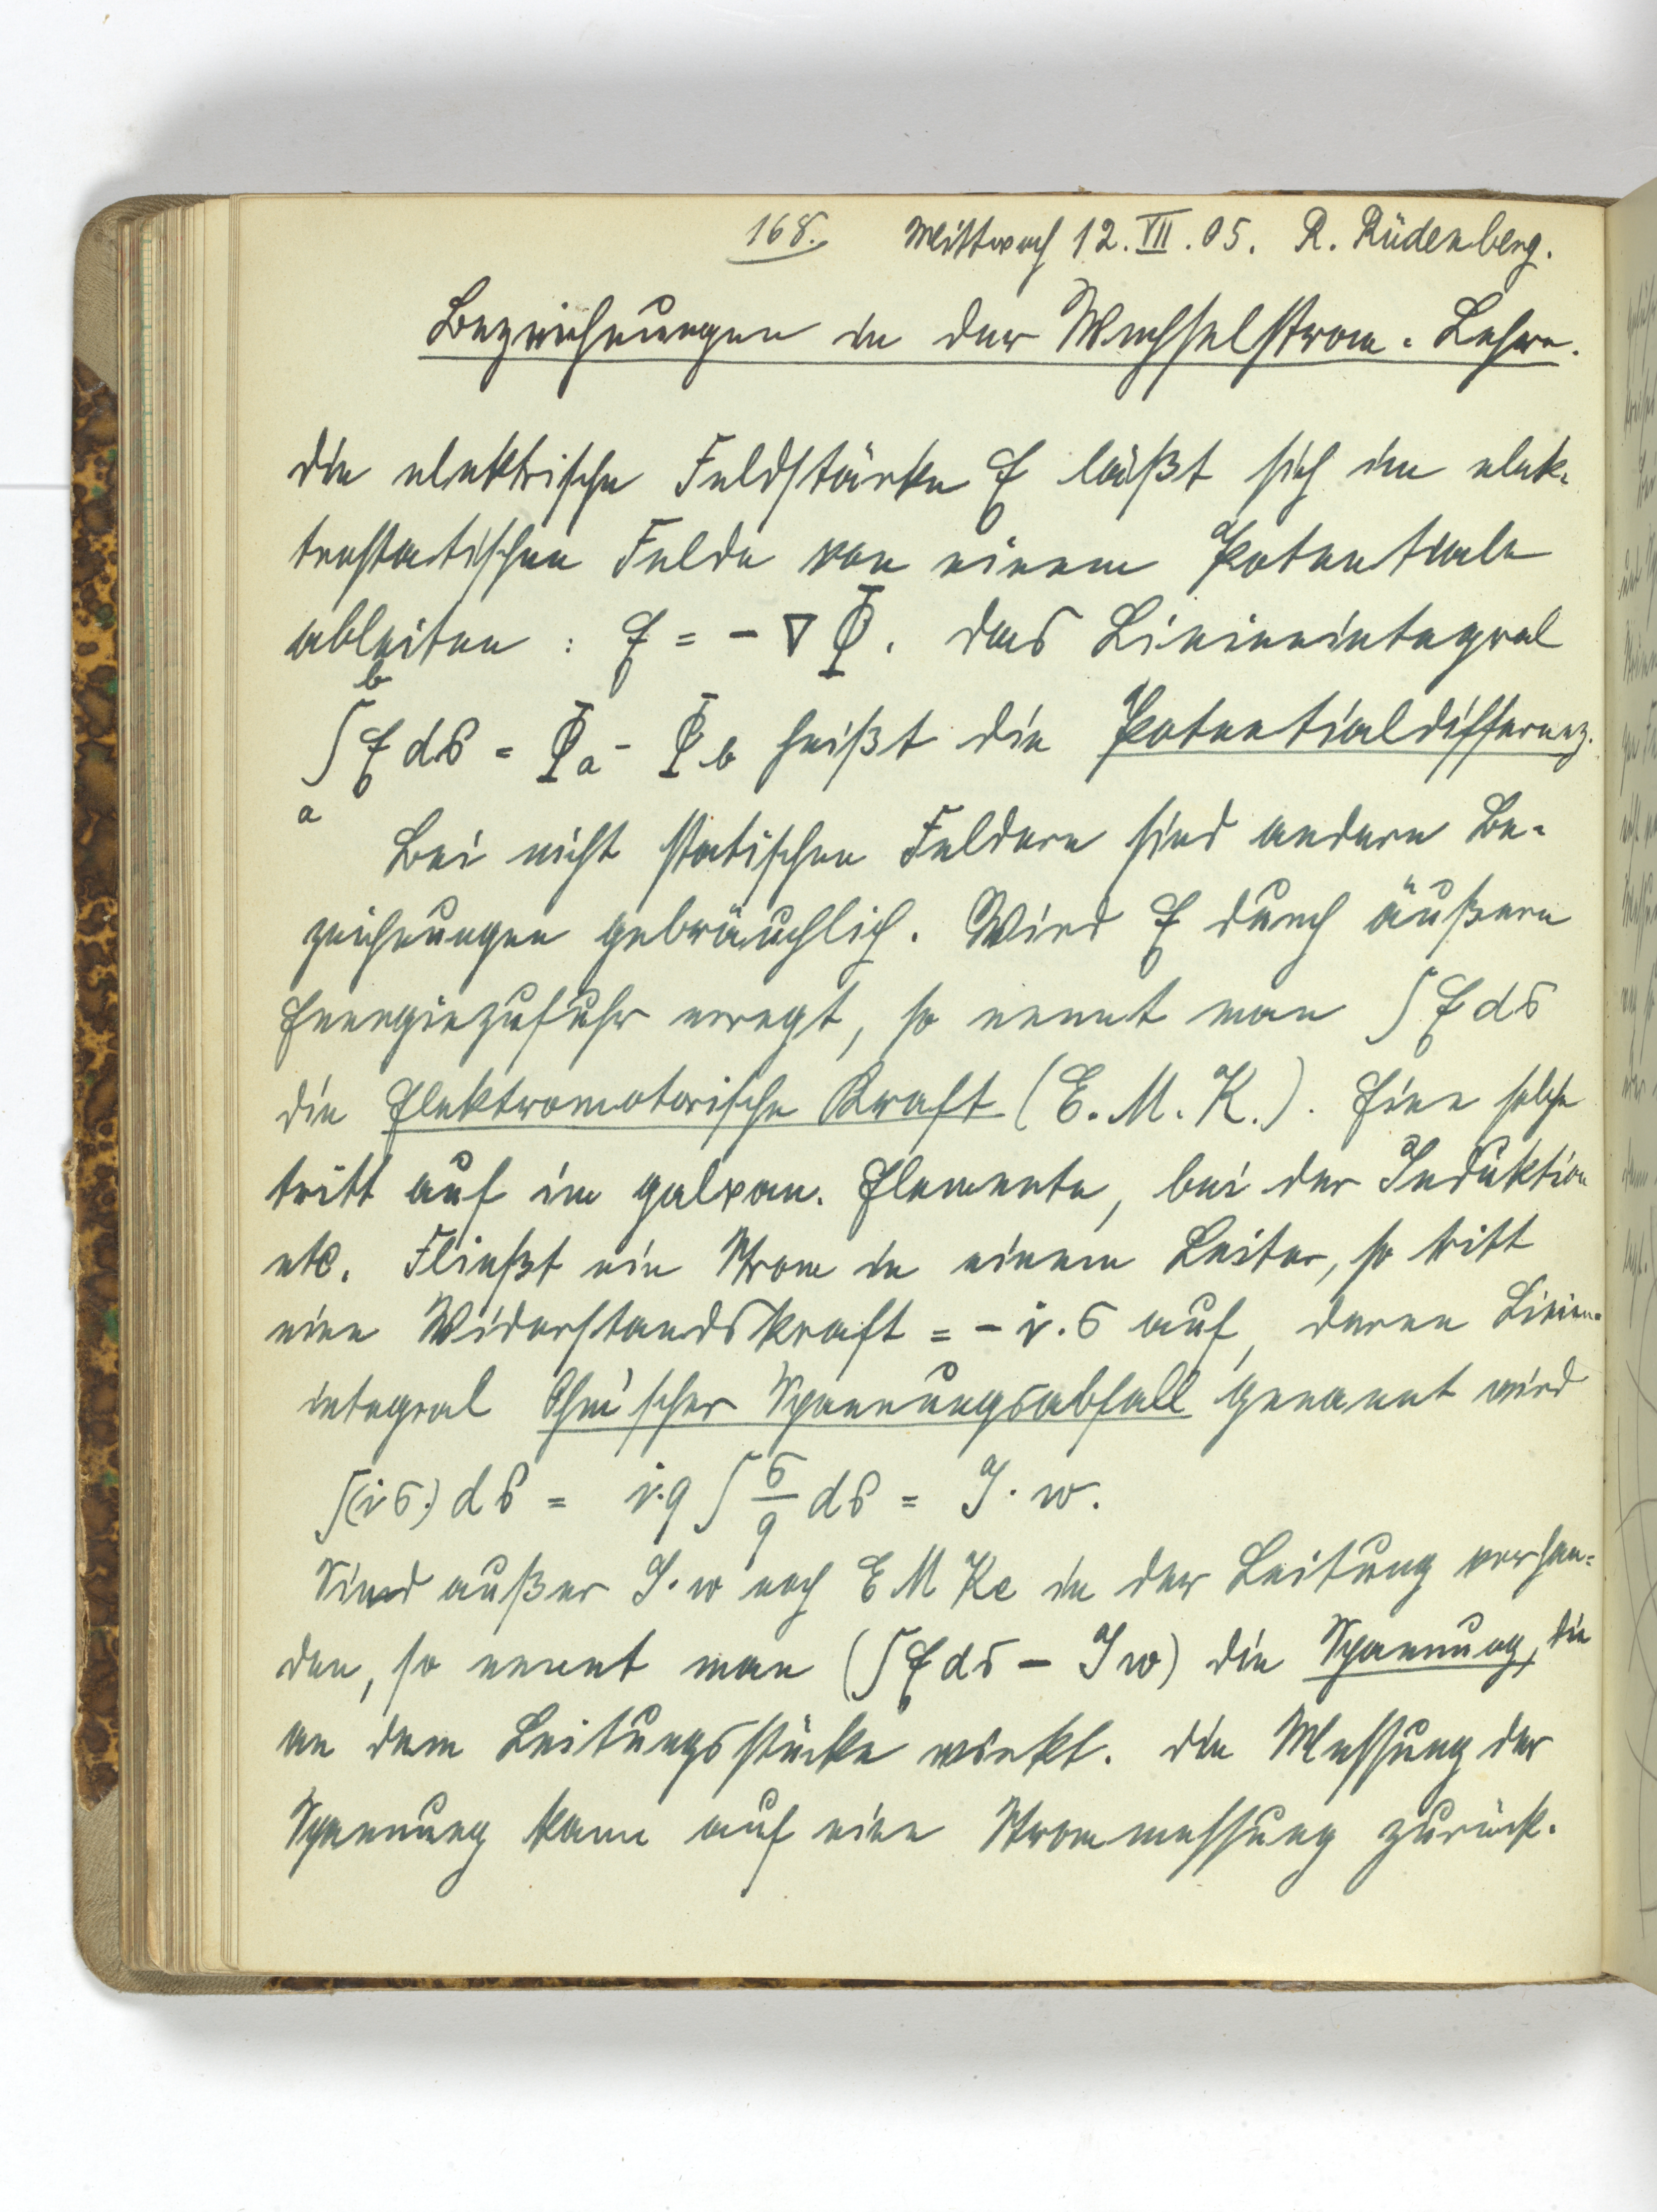 168. Mittwoch 12.VII.05. R. Rüdenberg.
Bezeichnungen in der Wechselstrom-Lehre.
Die elektrische Feldstärke E läßt sich im elek-
trostatischen Felde von einem Potentiale
ableiten : E = - ∇ Φ. Das Linienintegral
∫ₐᵇ E ds = Φa - Φb heißt die Potentialdifferenz.
Bei nicht statischen Feldern sind andere Be-
zeichnungen gebräuchlich. Wird E durch äußere
Energiezufuhr erregt, so nennt man ∫ E ds
die Elektromotorische Kraft (E.M.K.). Eine solche
tritt auf im galvan. Elemente, bei der Induktion
etc. Fließt ein Strom in einem Leiter, so tritt
eine Widerstandskraft = - i.σ auf, deren Linien-
integral Ohm'scher Spannungsabfall genannt wird
∫(i σ.) ds = i.q ∫ σ/q ds = J. w.
Sind außer J.w noch EMKe in der Leitung vorhan-
den, so nennt man (∫ E ds - Jw) die Spannung, die
an dem Leitungsstücke wirkt. Die Messung der
Spannung kann auf eine Strommessung zurück-